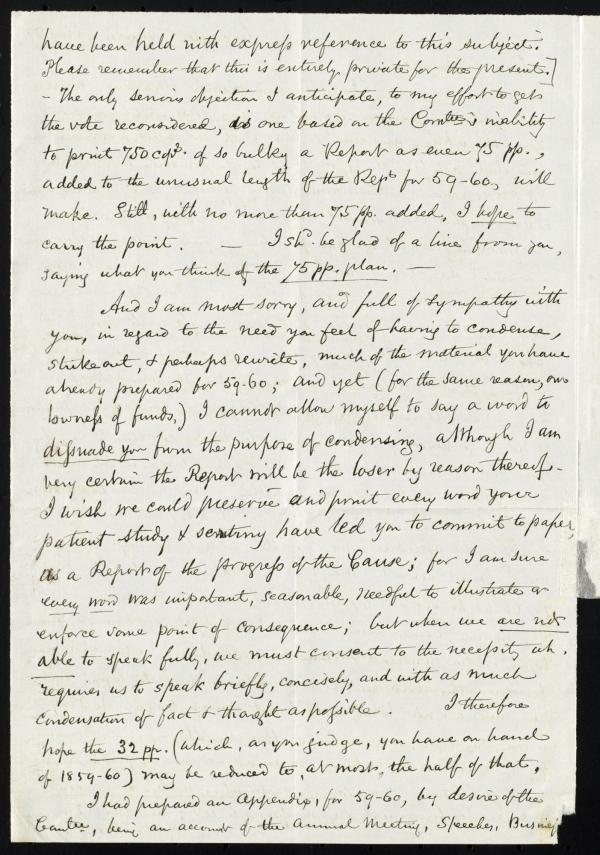 have been held with express reference to this subject.
Please remember that this is entirely private for the present.]
- The only serious objection I anticipate, to my effort to get
the vote reconsidered, is one based on the Comtee's inability
to print 750 cops. of so bulky a Report as even 75 pp.,
added to the unusual length of the Rept for 59-60, will
make. Still, with no more than 75 pp. added, I hope to
carry the point. — I shd. be glad of a line from you,
saying what you think of the 75 pp. plan. —
And I am most sorry, and full of sympathy with
you, in regard to the need you feel of having to condense,
strike out, & perhaps rewrite, much of the material you have
already prepared for 59-60; and yet (for the same reason, our
lowness of funds,) I cannot allow myself to say a word to
dissuade you from the purpose of condensing, although I am
very certain the Report will be the loser by reason thereof.
I wish we could preserve and print every word your
patient study & scrutiny have led you to commit to paper,
as a Report of the progress of the Cause; for I am sure
every word was important, seasonable, needful to illustrate or
enforce some point of consequence; but when we are not
able to speak fully, we must consent to the necessity wh.
requires us to speak briefly, concisely, and with as much
condensation of fact & thought as possible. I therefore
hope the 32 pp. (which, as you judge, you have on hand
of 1859-60) may be reduced to, at most, the half of that.
I had prepared an Appendix, for 59-60, by desire of the
Comtee, being an account of the Annual Meeting, Speeches, Busines